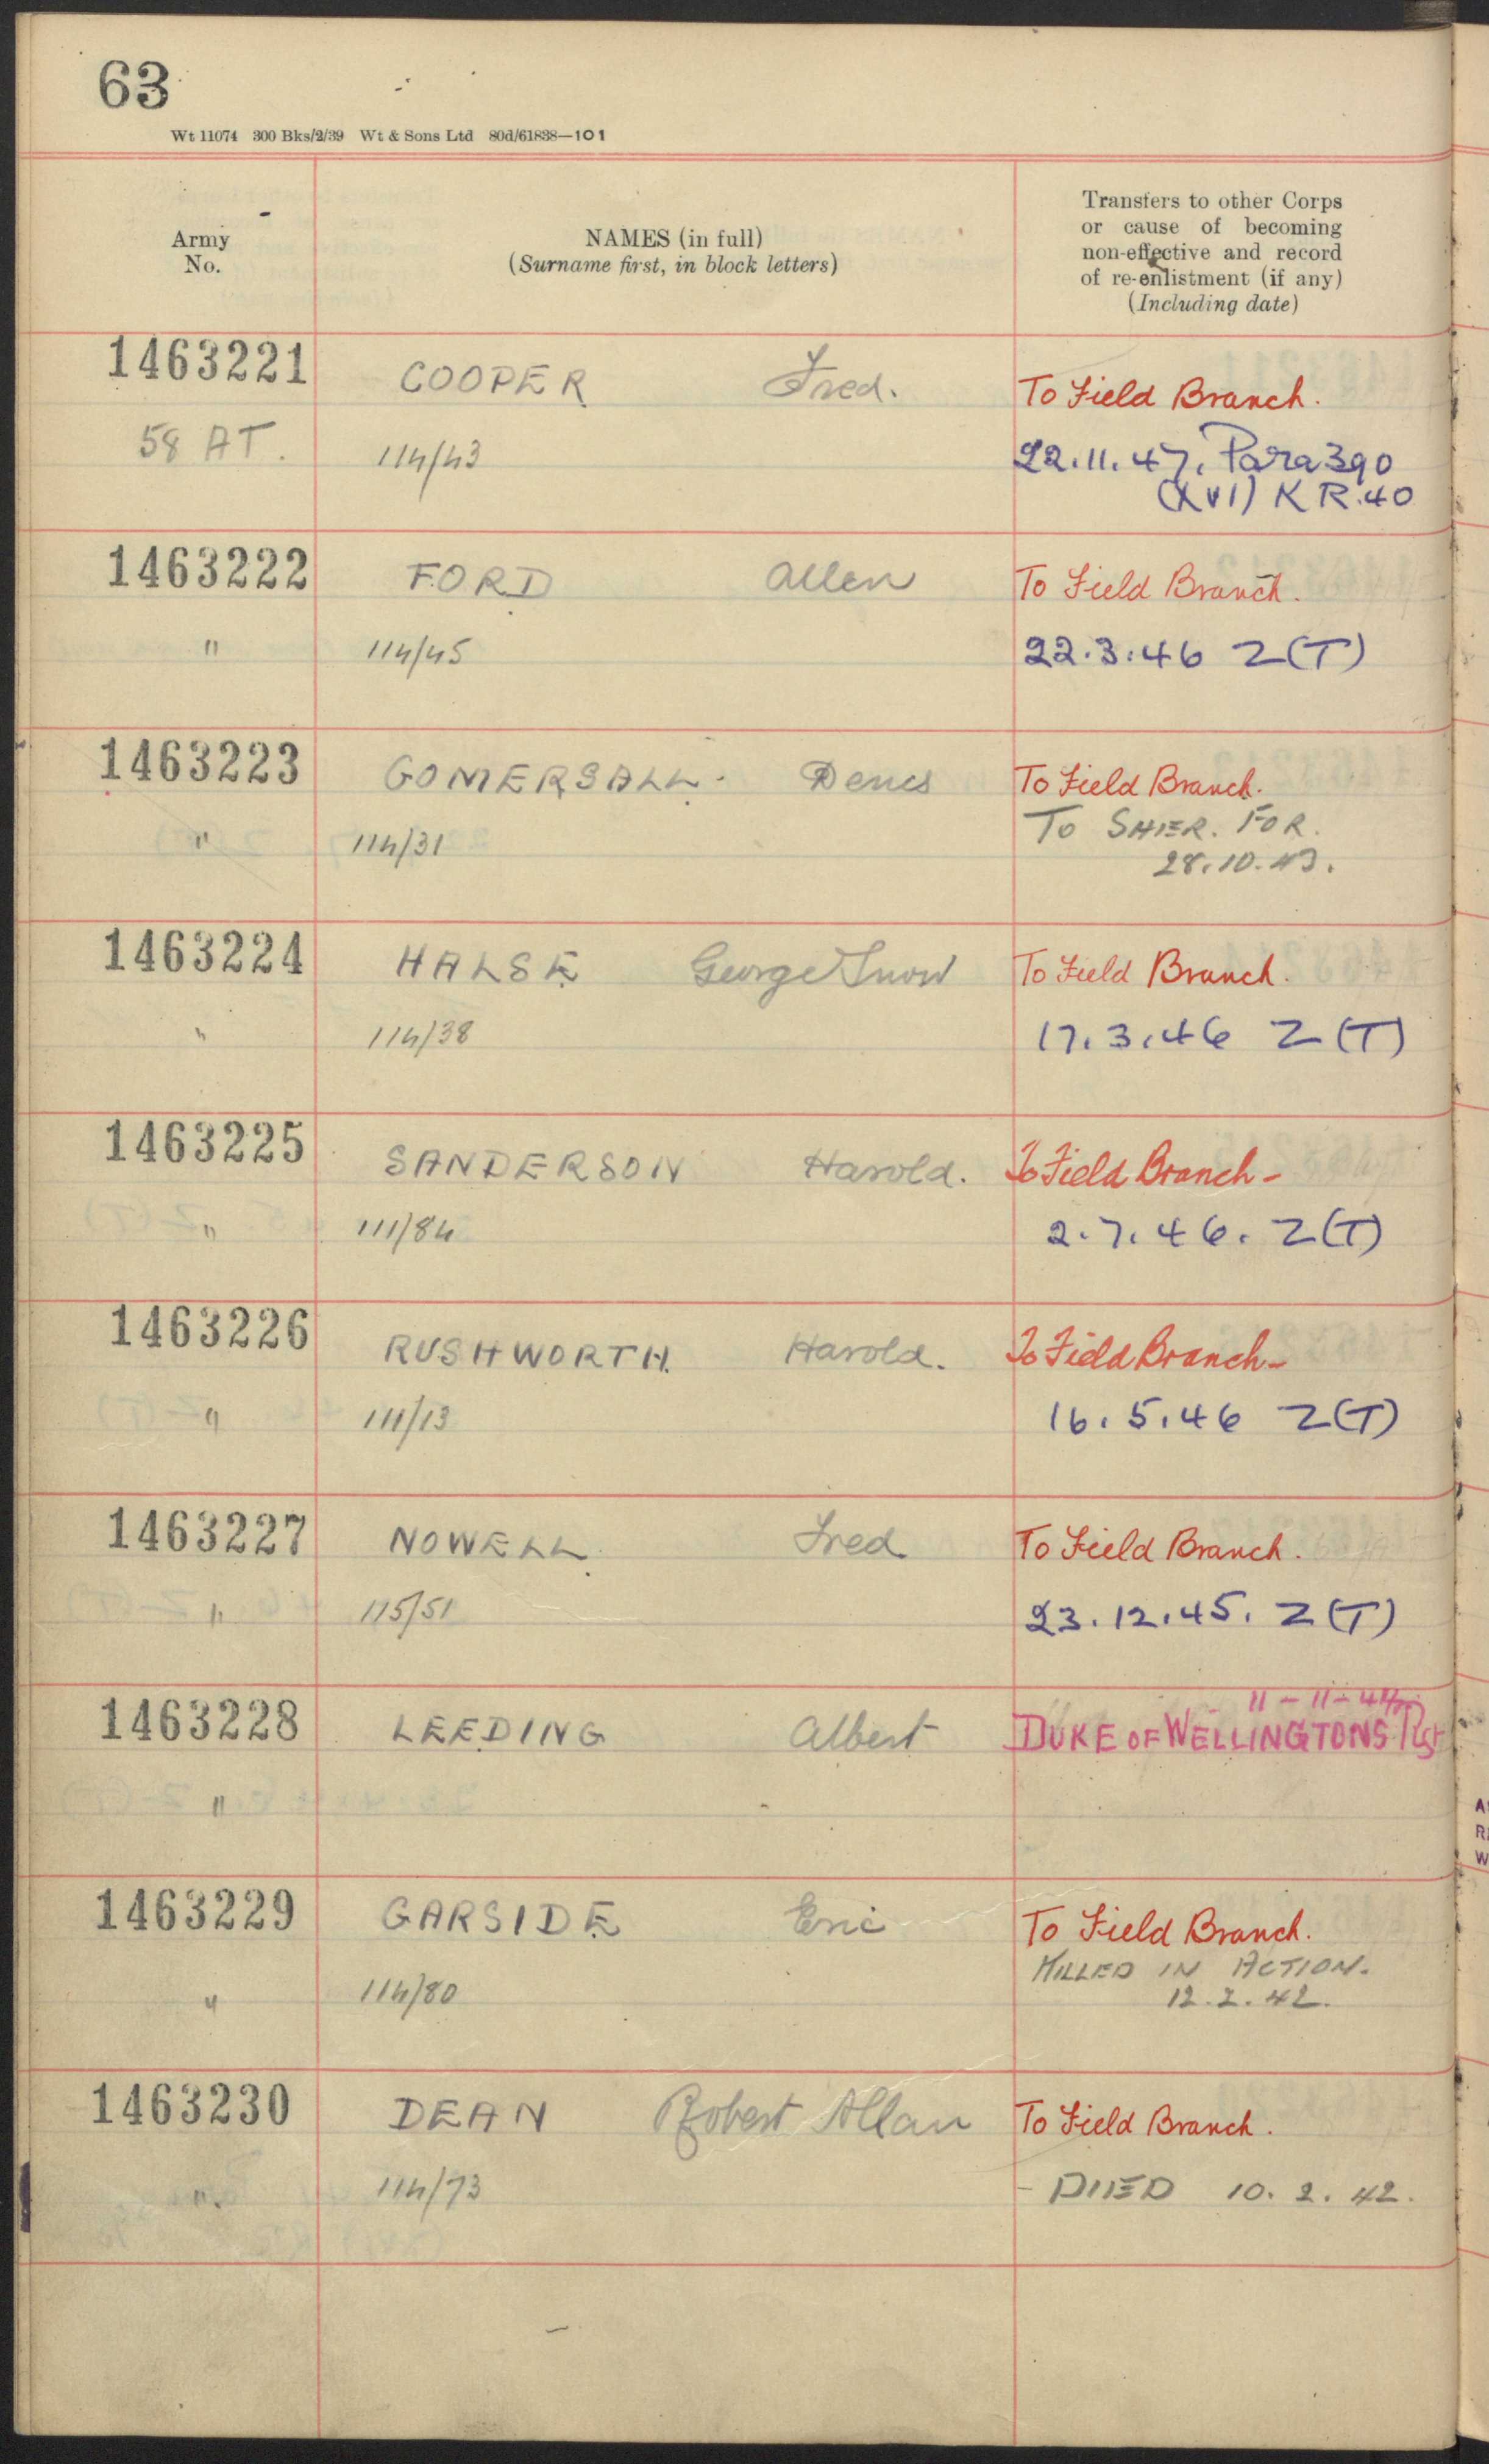 63
Wt 11074 300 Bks/2/39 Wt & Sons Ltd 80d/61838—101
Army
No.
NAMES (in full)
(Surname first, in block letters)
Transfers to other Corps
or cause of becoming
non-effective and record
of re-enlistment (if any)
(Including date)
1463221 COOPER Fred. To Field Branch.
58 AT. 114/43 22.11.47. Para 390
(XVI) K R.40
1463222 FORD Allen To Field Branch.
" 114/45 22.3.46 Z(T)
1463223 GOMERSALL. Denis To Field Branch.
" 114/31 To SHER. FOR.
28.10.43.
1463224 HALSE George Snow To Field Branch.
" 114/38 17.3.46 Z(T)
1463225 SANDERSON Harold. To Field Branch -
" 111/84 2.7.46. Z(T)
1463226 RUSHWORTH. Harold. To Field Branch -
" 111/13 16.5.46 Z(T)
1463227 NOWELL Fred To Field Branch.
" 115/51 23.12.45. Z(T)
11-11-
1463228 LEEDING Albert DUKE OF WELLINGTONS Rgt
"
1463229 GARSIDE Eric To Field Branch.
KILLED IN ACTION.
" 114/80 12.2.42.
1463230 DEAN Robert Allan To Field Branch.
". 114/73 - DIED 10.2.42.